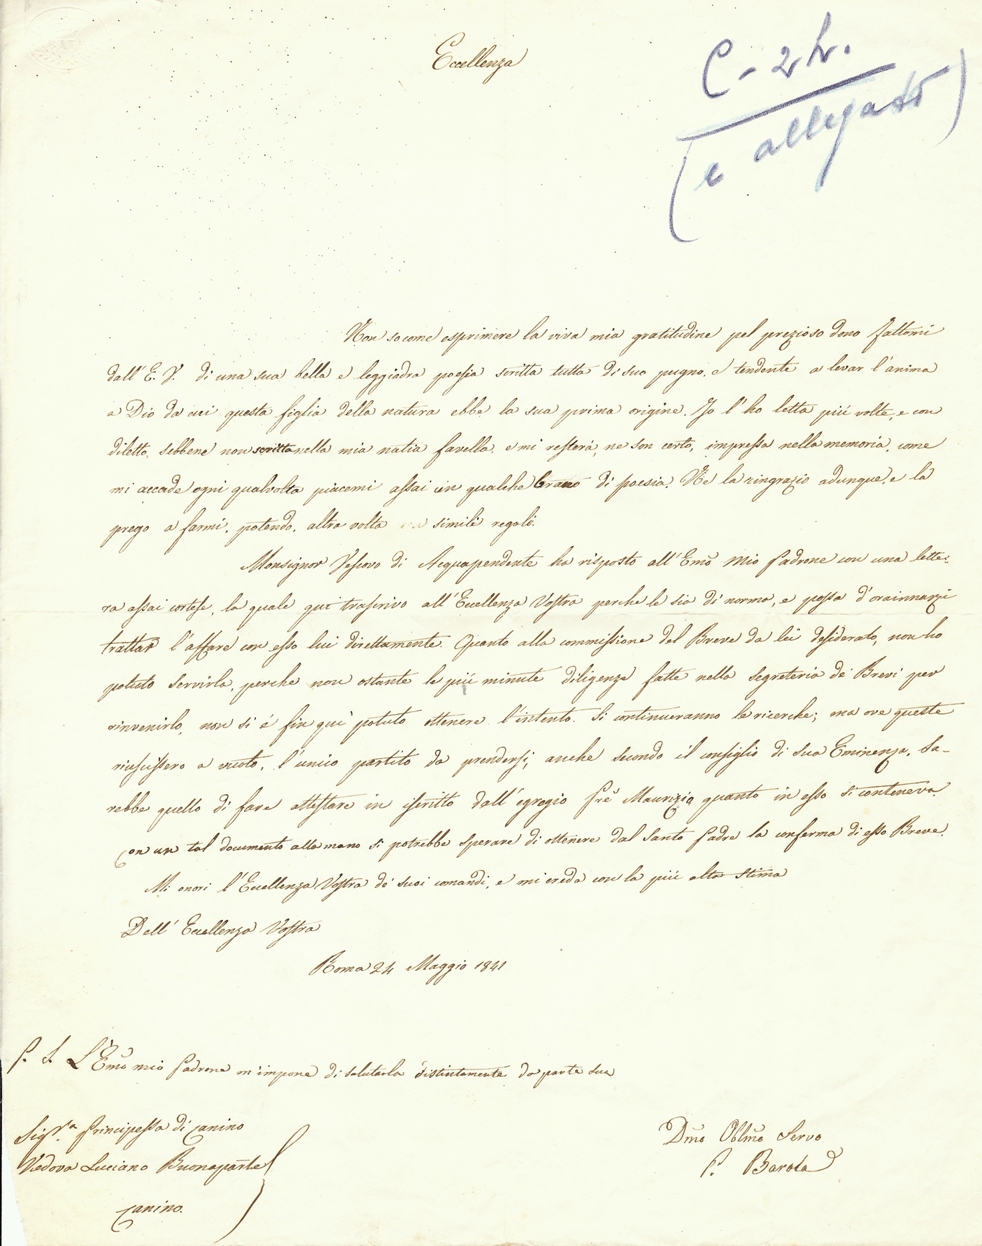 Eccellenza
C - 2 h.
(e allegato)
Non so come esprimere la viva mia gratitudine pel prezioso dono fattomi
dall'E. V. di una sua bella e leggiadra poesia scritta tutta di suo pugno, e tendente a levar l'anima
a Dio da cui questa figlia della natura ebbe la sua prima origine. Io l'ho letta più volte, e con
diletto, sebbene non scritta nella mia natia favella, e mi resterà, ne son certo, impressa nella memoria, come
mi accade ogni qualvolta piacemi assai un qualche brano di poesia. Ne la ringrazio adunque, e la
prego a farmi, potendo, altra volta simili regali.
Monsignor Vescovo di Acquapendente ha risposto all'Emo mio Padrone con una lette-
ra assai cortese, la quale qui trascrivo all'Eccellenza Vostra perche le sia di norma, e possa d'orainnanzi
trattar l'affare con esso lui direttamente. Quanto alla commissione del Breve da lei desiderato, non ho
potuto servirla, perche non ostante le più minute diligenze fatte nella segreteria de' Brevi per
rinvenirlo, non si è fin qui potuto ottenere l'intento. Si continueranno le ricerche; ma ove queste
riuscissero a vuoto, l'unico partito da prendersi, anche secondo il consiglio di sua Eminenza, sa-
rebbe quello di fare attestare in iscritto dall'egregio Pre Maurizio quanto in esso si conteneva.
Con un tal documento alla mano si potrebbe sperare di ottenere dal Santo Padre la conferma di esso Breve.
Mi onori l'Eccellenza Vostra de' suoi comandi, e mi creda con la più alta stima
Dell'Eccellenza Vostra
Roma 24 Maggio 1841
P. S. L'Emo mio Padrone m'impone di salutarla distintamente da parte sua
Sigra Principessa di Canino
Vedova Luciano Buonaparte
Canino
Dmo Obblmo Servo
P. Barola